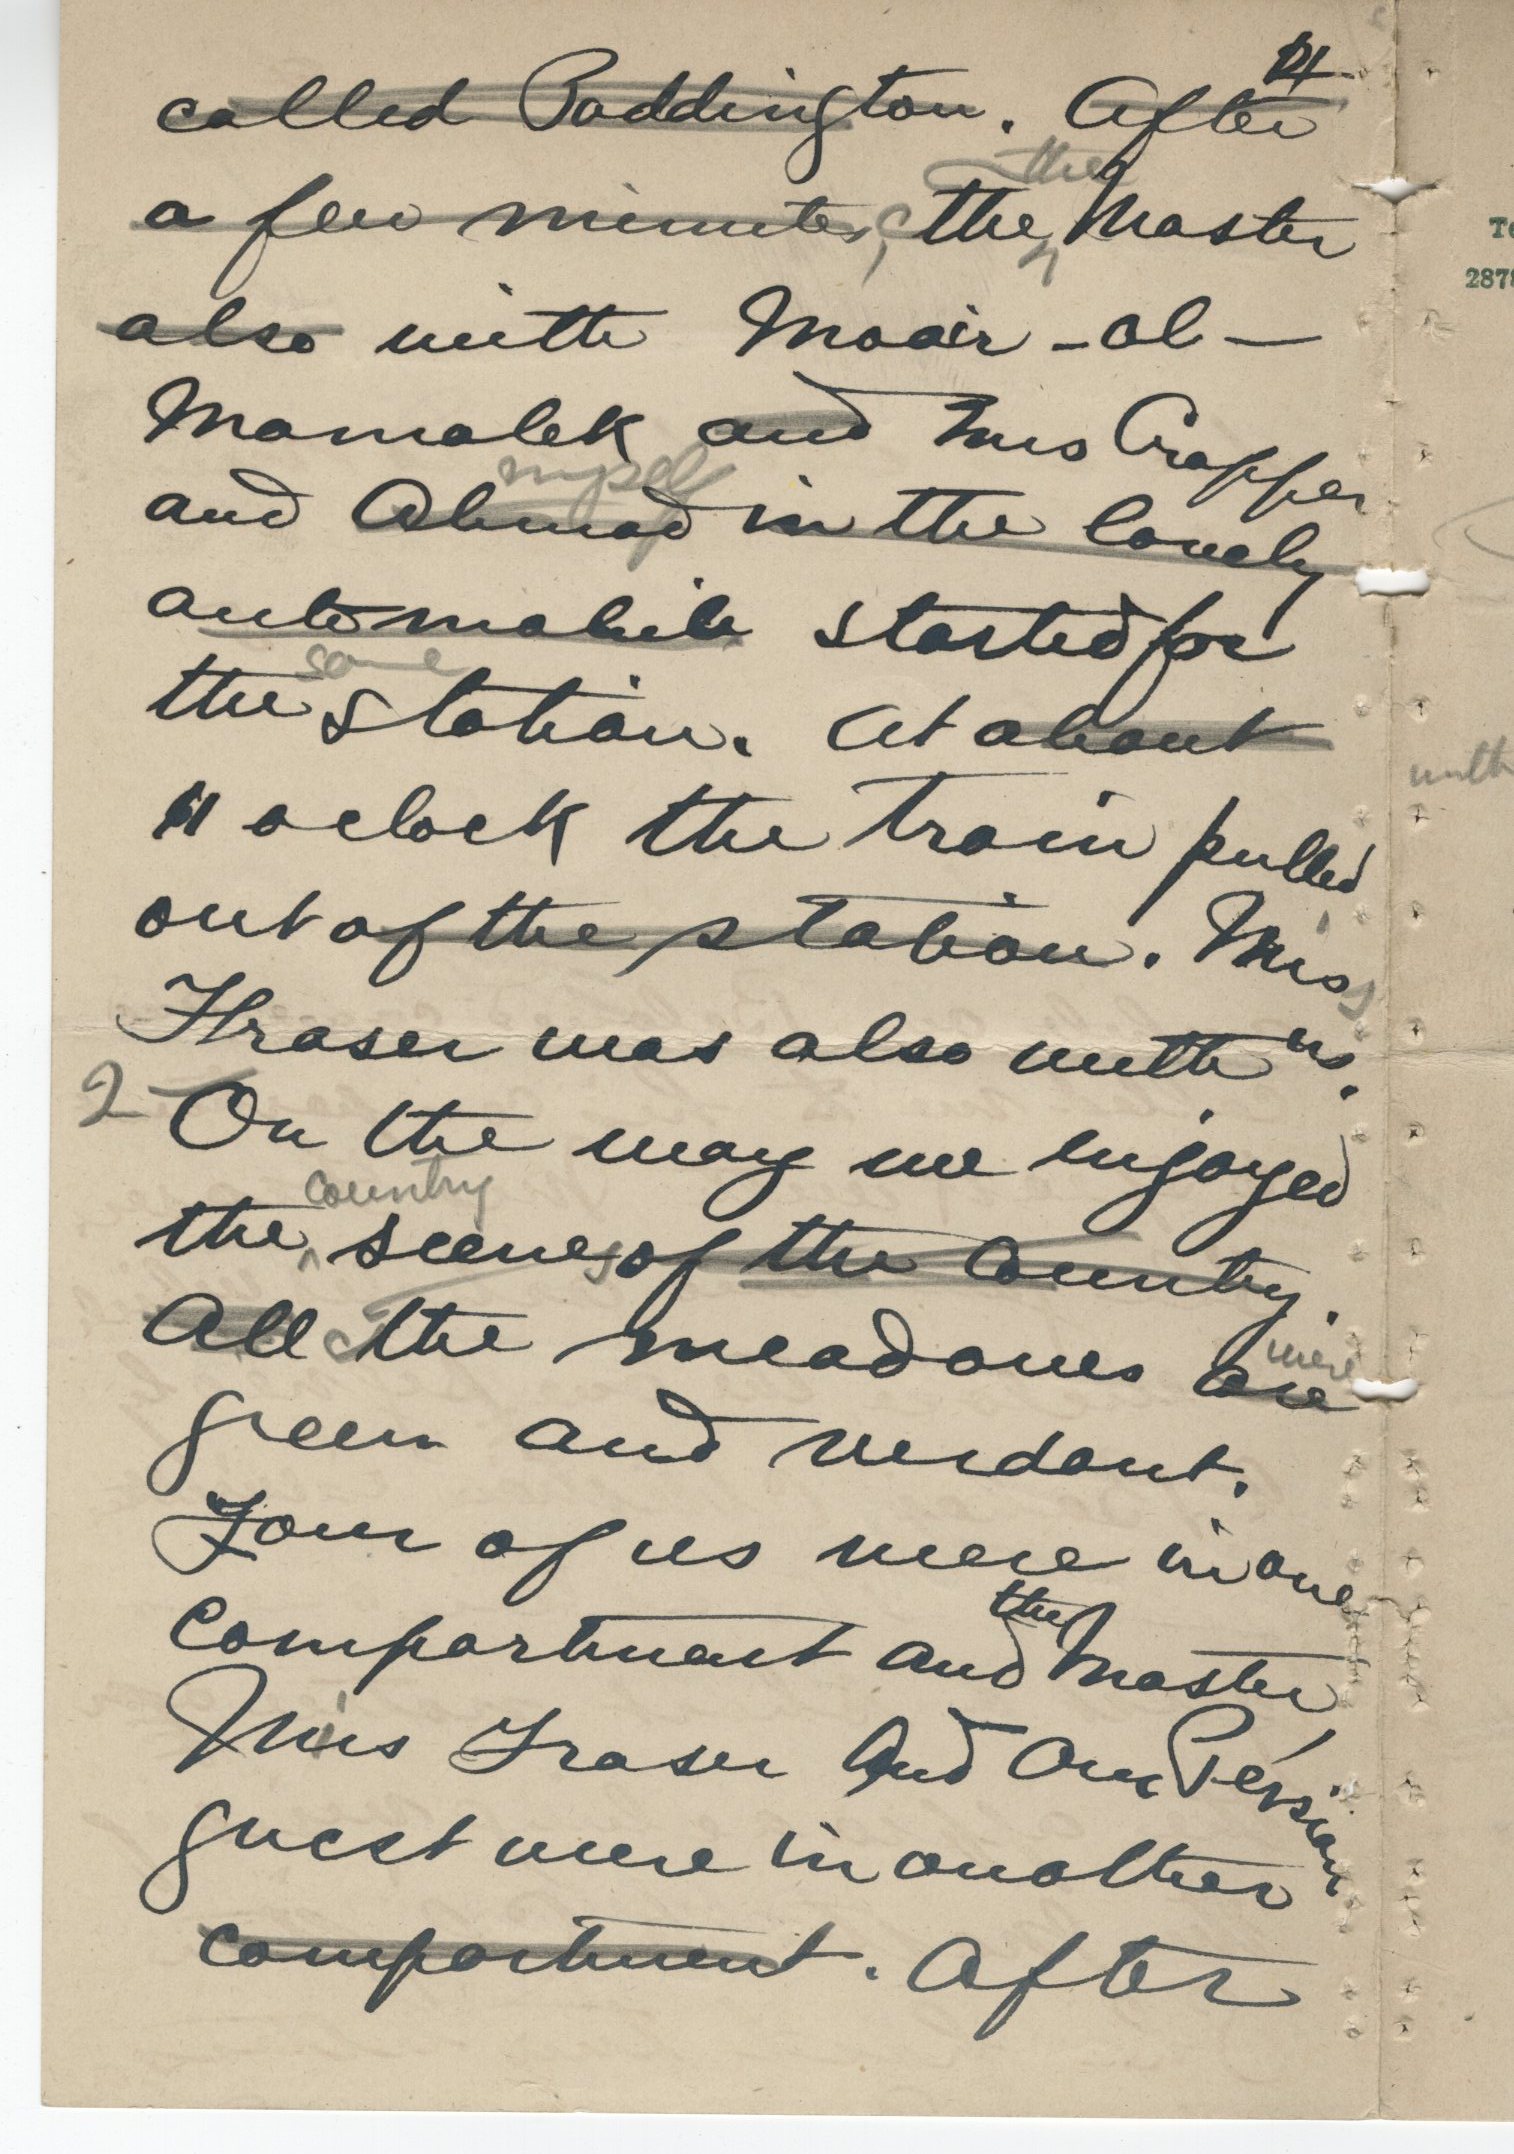 called Paddington. After
a few minutes, the the Master
also with Moair-ol-
Mamalek and Mrs Cropper
and Ahmad myself in the lovely
automobile started for
the same station. At about
11 oclock the train pulled
out of the station. Miss
Fraser was also with us.
2 On the way we enjoyed
the country scenes of the country.
All the meadows are were
green and verdant.
Four of us were in one
compartment and the Master
Miss Fraser and our Persian
guest were in another
compartment. After
with
287